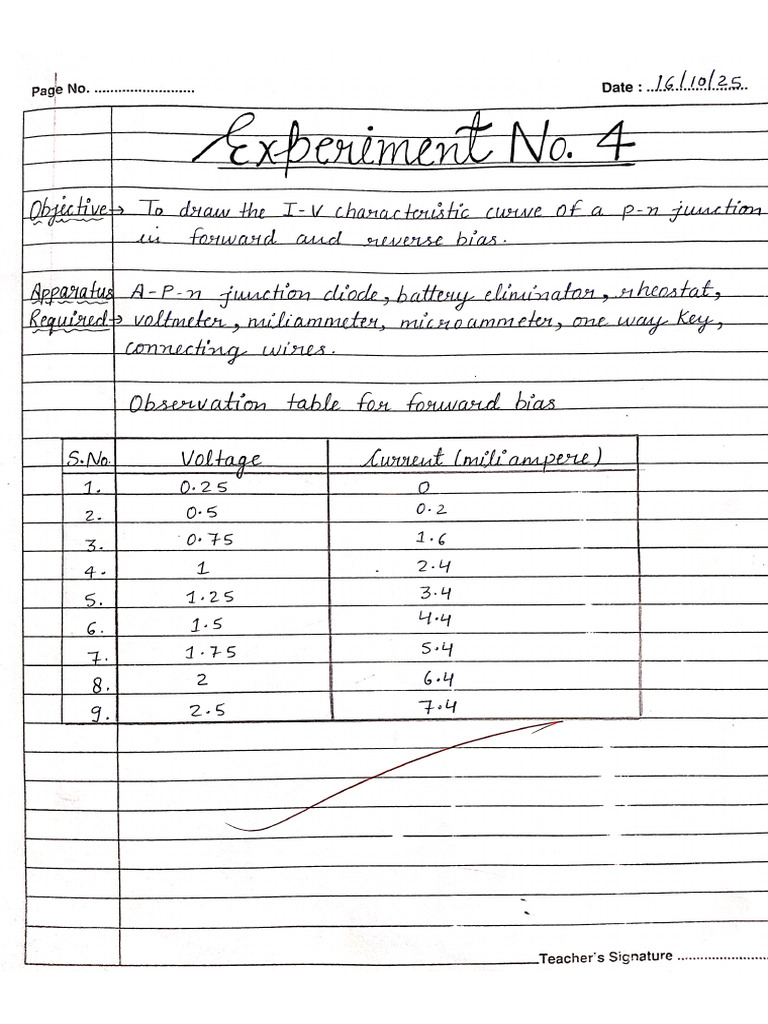 Page No. .........................
Date : ..16/10/25..
Experiment No. 4
Objective→ To draw the I-V characteristic curve of a p-n junction
in forward and reverse bias.
Apparatus A-P-n junction diode, battery eliminator, rheostat,
Required→ voltmeter, miliammeter, microammeter, one way key,
connecting wires.
Observation table for forward bias
S.No. Voltage Current (mili ampere)
1. 0.25 0
2. 0.5 0.2
3. 0.75 1.6
4. 1 2.4
5. 1.25 3.4
6. 1.5 4.4
7. 1.75 5.4
8. 2 6.4
9. 2.5 7.4
Teacher's Signature ........................